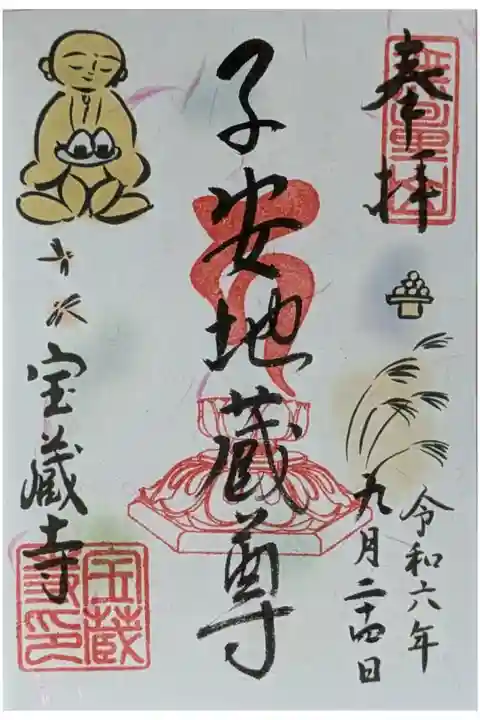 奉拝
令和六年
九月二十四日
子安地蔵尊
宝蔵寺
宝蔵